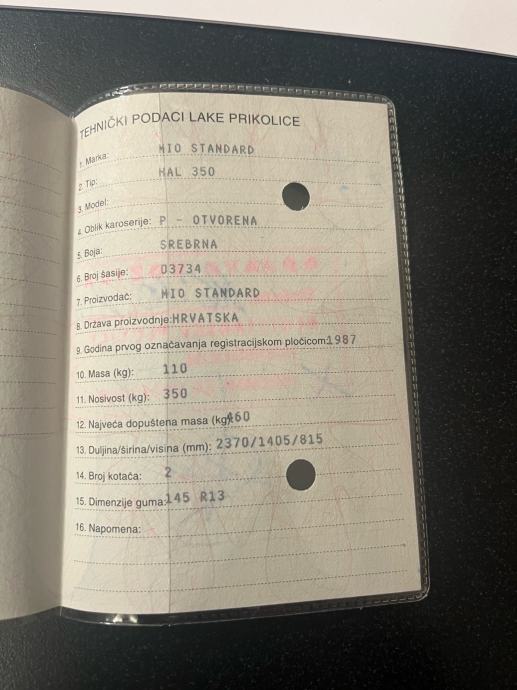 TEHNIČKI PODACI LAKE PRIKOLICE
1. Marka: MIO STANDARD
2. Tip: HAL 350
3. Model:
4. Oblik karoserije: P - OTVORENA
5. Boja: SREBRNA
6. Broj šasije: 03734
7. Proizvođač: MIO STANDARD
8. Država proizvodnje: HRVATSKA
9. Godina prvog označavanja registracijskom pločicom 1987
10. Masa (kg): 110
11. Nosivost (kg): 350
12. Najveća dopuštena masa (kg): 460
13. Duljina/širina/visina (mm): 2370/1405/815
14. Broj kotača: 2
15. Dimenzije guma: 145 R13
16. Napomena: